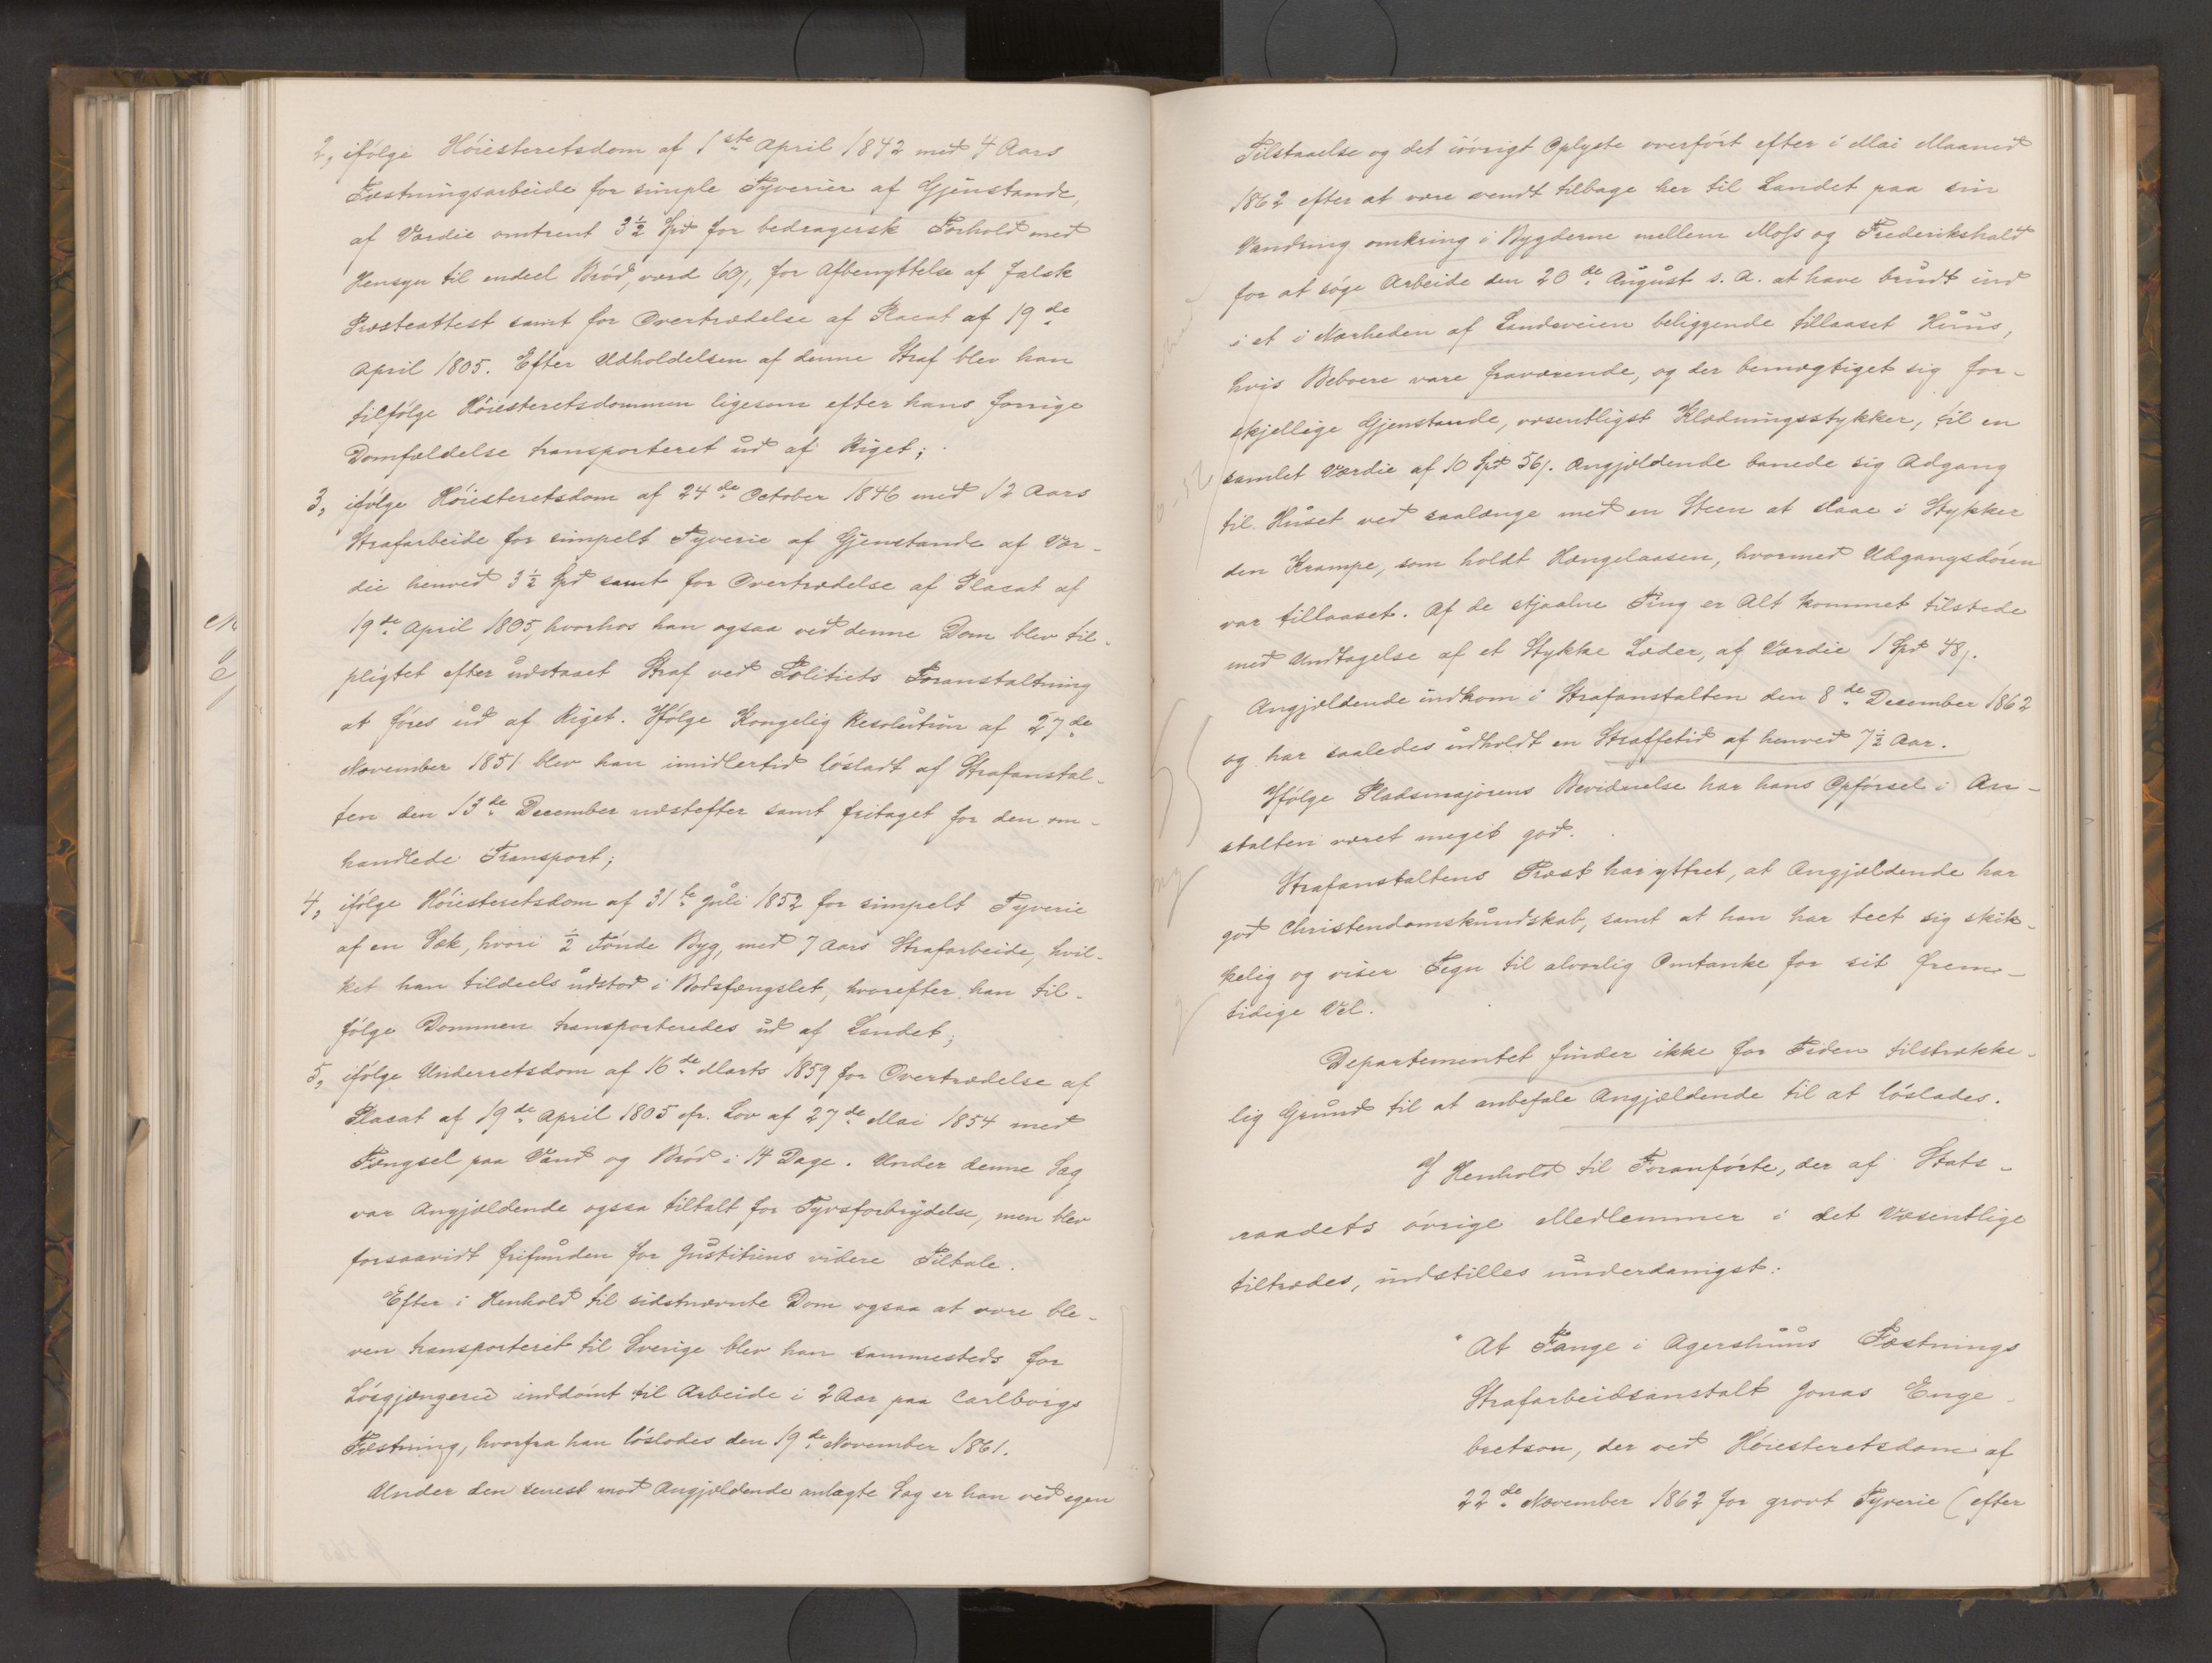 2, ifølge Höiesteretsdom af 1ste April 1842 med 4 Aars
Fæstningsarbeide for simple Tyverier af Gjenstande,
af Værdie omtrent 3½ Spd for bedragersk Forhold med
Hensyn til endeel Brød, værd 60ſ, for Afbenyttelse af falsk
Præsteattest samt for Overtrædelse af Placat af 19de
April 1805. Efter Udholdelsen af denne Straf blev han
tilfølge Höiesteretsdommen ligesom efter hans forrige
Domfældelse transporteret ud af Riget;
3, ifølge Höiesteretsdom af 24de October 1846 med 12 Aars
Strafarbeide for simpelt Tyverie af Gjenstande af Vær-
die henved 3½ Spd samt for Overtrædelse af Placat af
19de April 1805, hvorhos han ogsaa ved denne Dom blev til-
pligtet efter udstaaet Straf ved Politiets Foranstaltning
at føres ud af Riget. Ifølge Kongelig Resolution af 27de
November 1851 blev han imidlertid løsladt af Strafanstal-
ten den 13de December næstefter samt fritaget for den om-
handlede Transport;
4, ifølge Höiesteretsdom af 31te Juli 1852 for simpelt Tyverie
af en Sæk, hvori ½ Tønde Byg, med 7 Aars Strafarbeide, hvil-
ket han tildeels udstod i Bodsfængslet, hvorefter han til-
følge Dommen transporteredes ud af Landet;
5, ifølge Underretsdom af 16de Marts 1859 for Overtrædelse af
Placat af 19de April 1805 cfr. Lov af 27de Mai 1854 med
Fængsel paa Vand og Brød i 14 Dage. Under denne Sag
var Angjældende ogsaa tiltalt for Tyvsforbrydelse, men blev
forsaavidt frifunden for Justitiens videre Tiltale.
Efter i Henhold til sidstnævnte Dom ogsaa at være ble-
ven transporteret til Sverige blev han sammesteds for
Løsgjængerie inddømt til Arbeide i 2 Aar paa Carlborgs
Fæstning, hvorfra han løslodes den 19de November 1861.
Under den senest mod Angjældende anlagte Sag er han ved egen
Tilstaaelse og det iøvrigt Oplyste overført efter i Mai Maaned
1862 efter at være vendt tilbage her til Landet paa sin
Vandring omkring i Bygderne mellem Moss og Frederikshald
for at søge Arbeide den 20de August s. A. at have brudt ind
i et i Nærheden af Landeveien beliggende tillaaset Huus,
hvis Beboere vare fraværende, og der bemægtiget sig for-
skjellige Gjenstande, væsentligst Klædningsstykker, til en
samlet Værdie af 10 Spd 56ſ. Angjældende banede sig Adgang
til Huset ved saalænge med en Steen at slaae i Stykker
den Krampe, som holdt Hængelaasen, hvormed Udgangsdøren
var tillaaset. Af de stjaalne Ting er Alt kommet tilstede
med Undtagelse af et Stykke Læder, af Værdie 1 Spd 48ſ.
Angjældende indkom i Strafanstalten den 8de December 1862
og har saaledes udholdt en Straffetid af henved 7½ Aar.
Ifølge Pladsmajorens Bevidnelse har hans Opførsel i An-
stalten været meget god.
Strafanstaltens Præst har yttret, at Angjældende har
god Christendomskundskab, samt at han har teet sig skik-
kelig og viser Tegn til alvorlig Omtanke for sit frem-
tidige Vel.
Departementet finder ikke for Tiden tilstrække-
lig Grund til at anbefale Angjældende til at løslades.
I Henhold til Foranførte, der af Stats-
raadets øvrige Medlemmer i det Væsentlige
tiltrædes, indstilles underdanigst:
"At Fange i Agershuus Fæstnings
Strafarbeidsanstalt Jonas Enge-
bretson, der ved Höiesteretsdom af
22de November 1862 for grovt Tyverie (efter